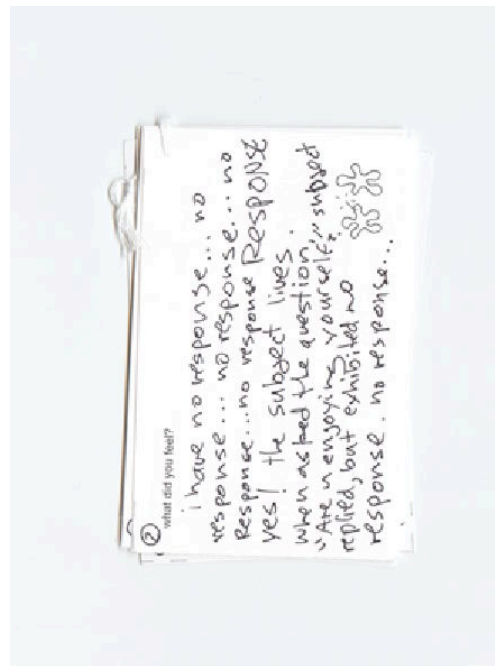 ② what did you feel?
i have no response... no
response... no response... no
Response... no response RESPONSE
yes! the subject lives.
when asked the question,
"Are u enjoying yourself?" subject
replied, but exhibited no
response. no response...